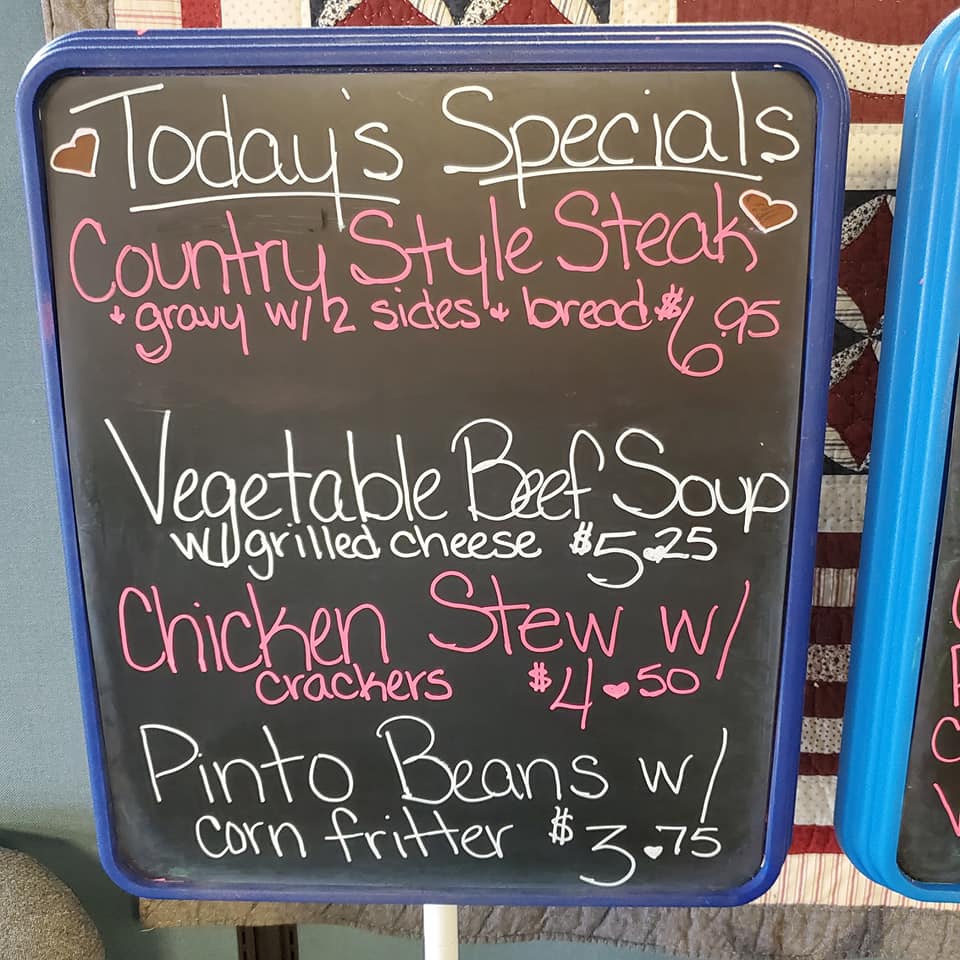 Today's Specials
Country Style Steak
+ gravy w/ 2 sides + bread $6.95
Vegetable Beef Soup
w/ grilled cheese $5.25
Chicken Stew w/
crackers $4.50
Pinto Beans w/
corn fritter $3.75